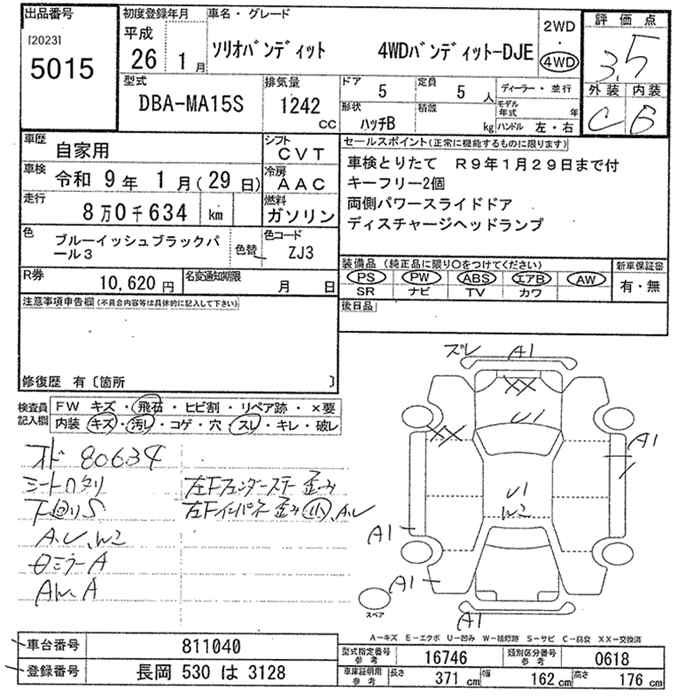 出品番号
[2023]
5015
初度登録年月
平成
26 1月
車名・グレード
ソリオバンディット 4WDバンディット-DJE
2WD
・
4WD
評価点
3.5
外装 内装
C B
型式
DBA-MA15S
排気量
1242
cc
ドア
5
定員
5 人
形状
ハッチB
積載
kg
ディーラー・並行
モデル年式 年
ハンドル 左・右
車歴
自家用
シフト
CVT
車検
令和 9年 1月(29日)
冷房
AAC
走行
8万0千634 km
燃料
ガソリン
色
ブルーイッシュブラックパ
ール3
色替
色コード
ZJ3
R券
10,620円
名変通知期限
月 日
セールスポイント(正常に機能するものに限ります)
車検とりたて R9年1月29日まで付
キーフリー2個
両側パワースライドドア
ディスチャージヘッドランプ
装備品(純正品に限り○をつけてください)
PS PW ABS エアB AW
SR ナビ TV カワ
新車保証書
有・無
後日品
注意事項申告欄(不具合内容等は具体的に記入して下さい)
修復歴 有〔箇所 〕
検査員
記入欄
FW キズ・飛石・ヒビ割・リペア跡・×要
内装・キズ・汚レ・コゲ・穴・スレ・キレ・破レ
オド 80634
シートロタリ
下回りS
A.U.W2
ロミラーA
左Fフェンダーステー歪み
左Fインパネ歪み 小 A.U
ズレ A1
XX
U1
XX
A1
U1
W2
A1
A1
A1
スペア
A-キズ E-エクボ U-凹み W-補修跡 S-サビ C-腐食 XX-交換済
車台番号
811040
登録番号
長岡 530 は 3128
型式指定番号
参考
16746
類別区分番号
参考
0618
車庫証明用
参考
長さ
371 cm
幅
162 cm
高さ
176 cm